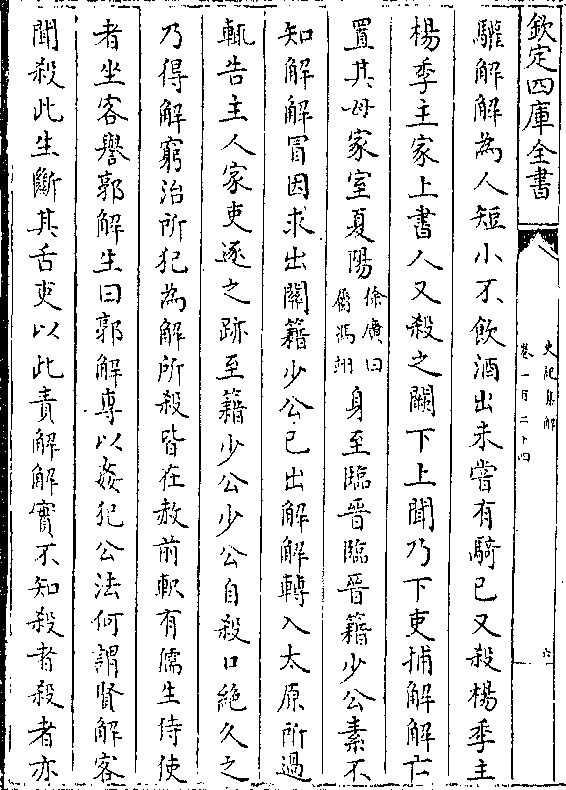 欽定四庫全書
史記集解
卷一百二十四
六
驩解解為人短小不飲酒出未嘗有騎已又殺楊季主
楊季主家上書人又殺之闕下上聞乃下吏捕解解亡
置其母家室夏陽徐廣曰屬馮翊身至臨晉臨晉籍少公素不
知解解冒因求出關籍少公已出解解轉入太原所過
輒告主人家吏逐之跡至籍少公少公自殺口絶久之
乃得解窮治所犯為解所殺皆在赦前軹有儒生侍使
者坐客譽郭解生曰郭解專以姦犯公法何謂賢解客
聞殺此生斷其舌吏以此責解解實不知殺者殺者亦